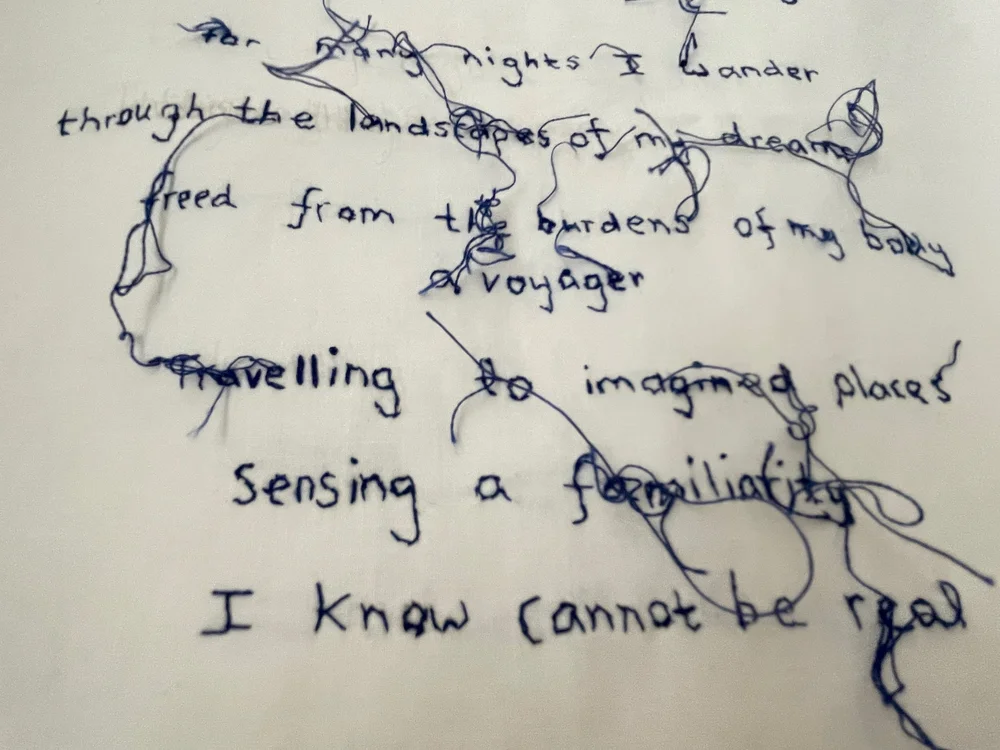 For many nights I wander
through the landscapes of my dreams
freed from the burdens of my body
a voyager
Travelling to imagined places
Sensing a familiarity
I know cannot be real